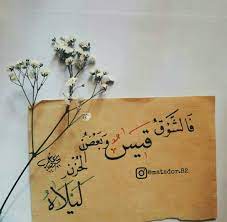 فَالشَّوْقُ
قَيسٌ وَبَعْضُ
الحُزنِ
لَيْلَاهُ
@matador.82